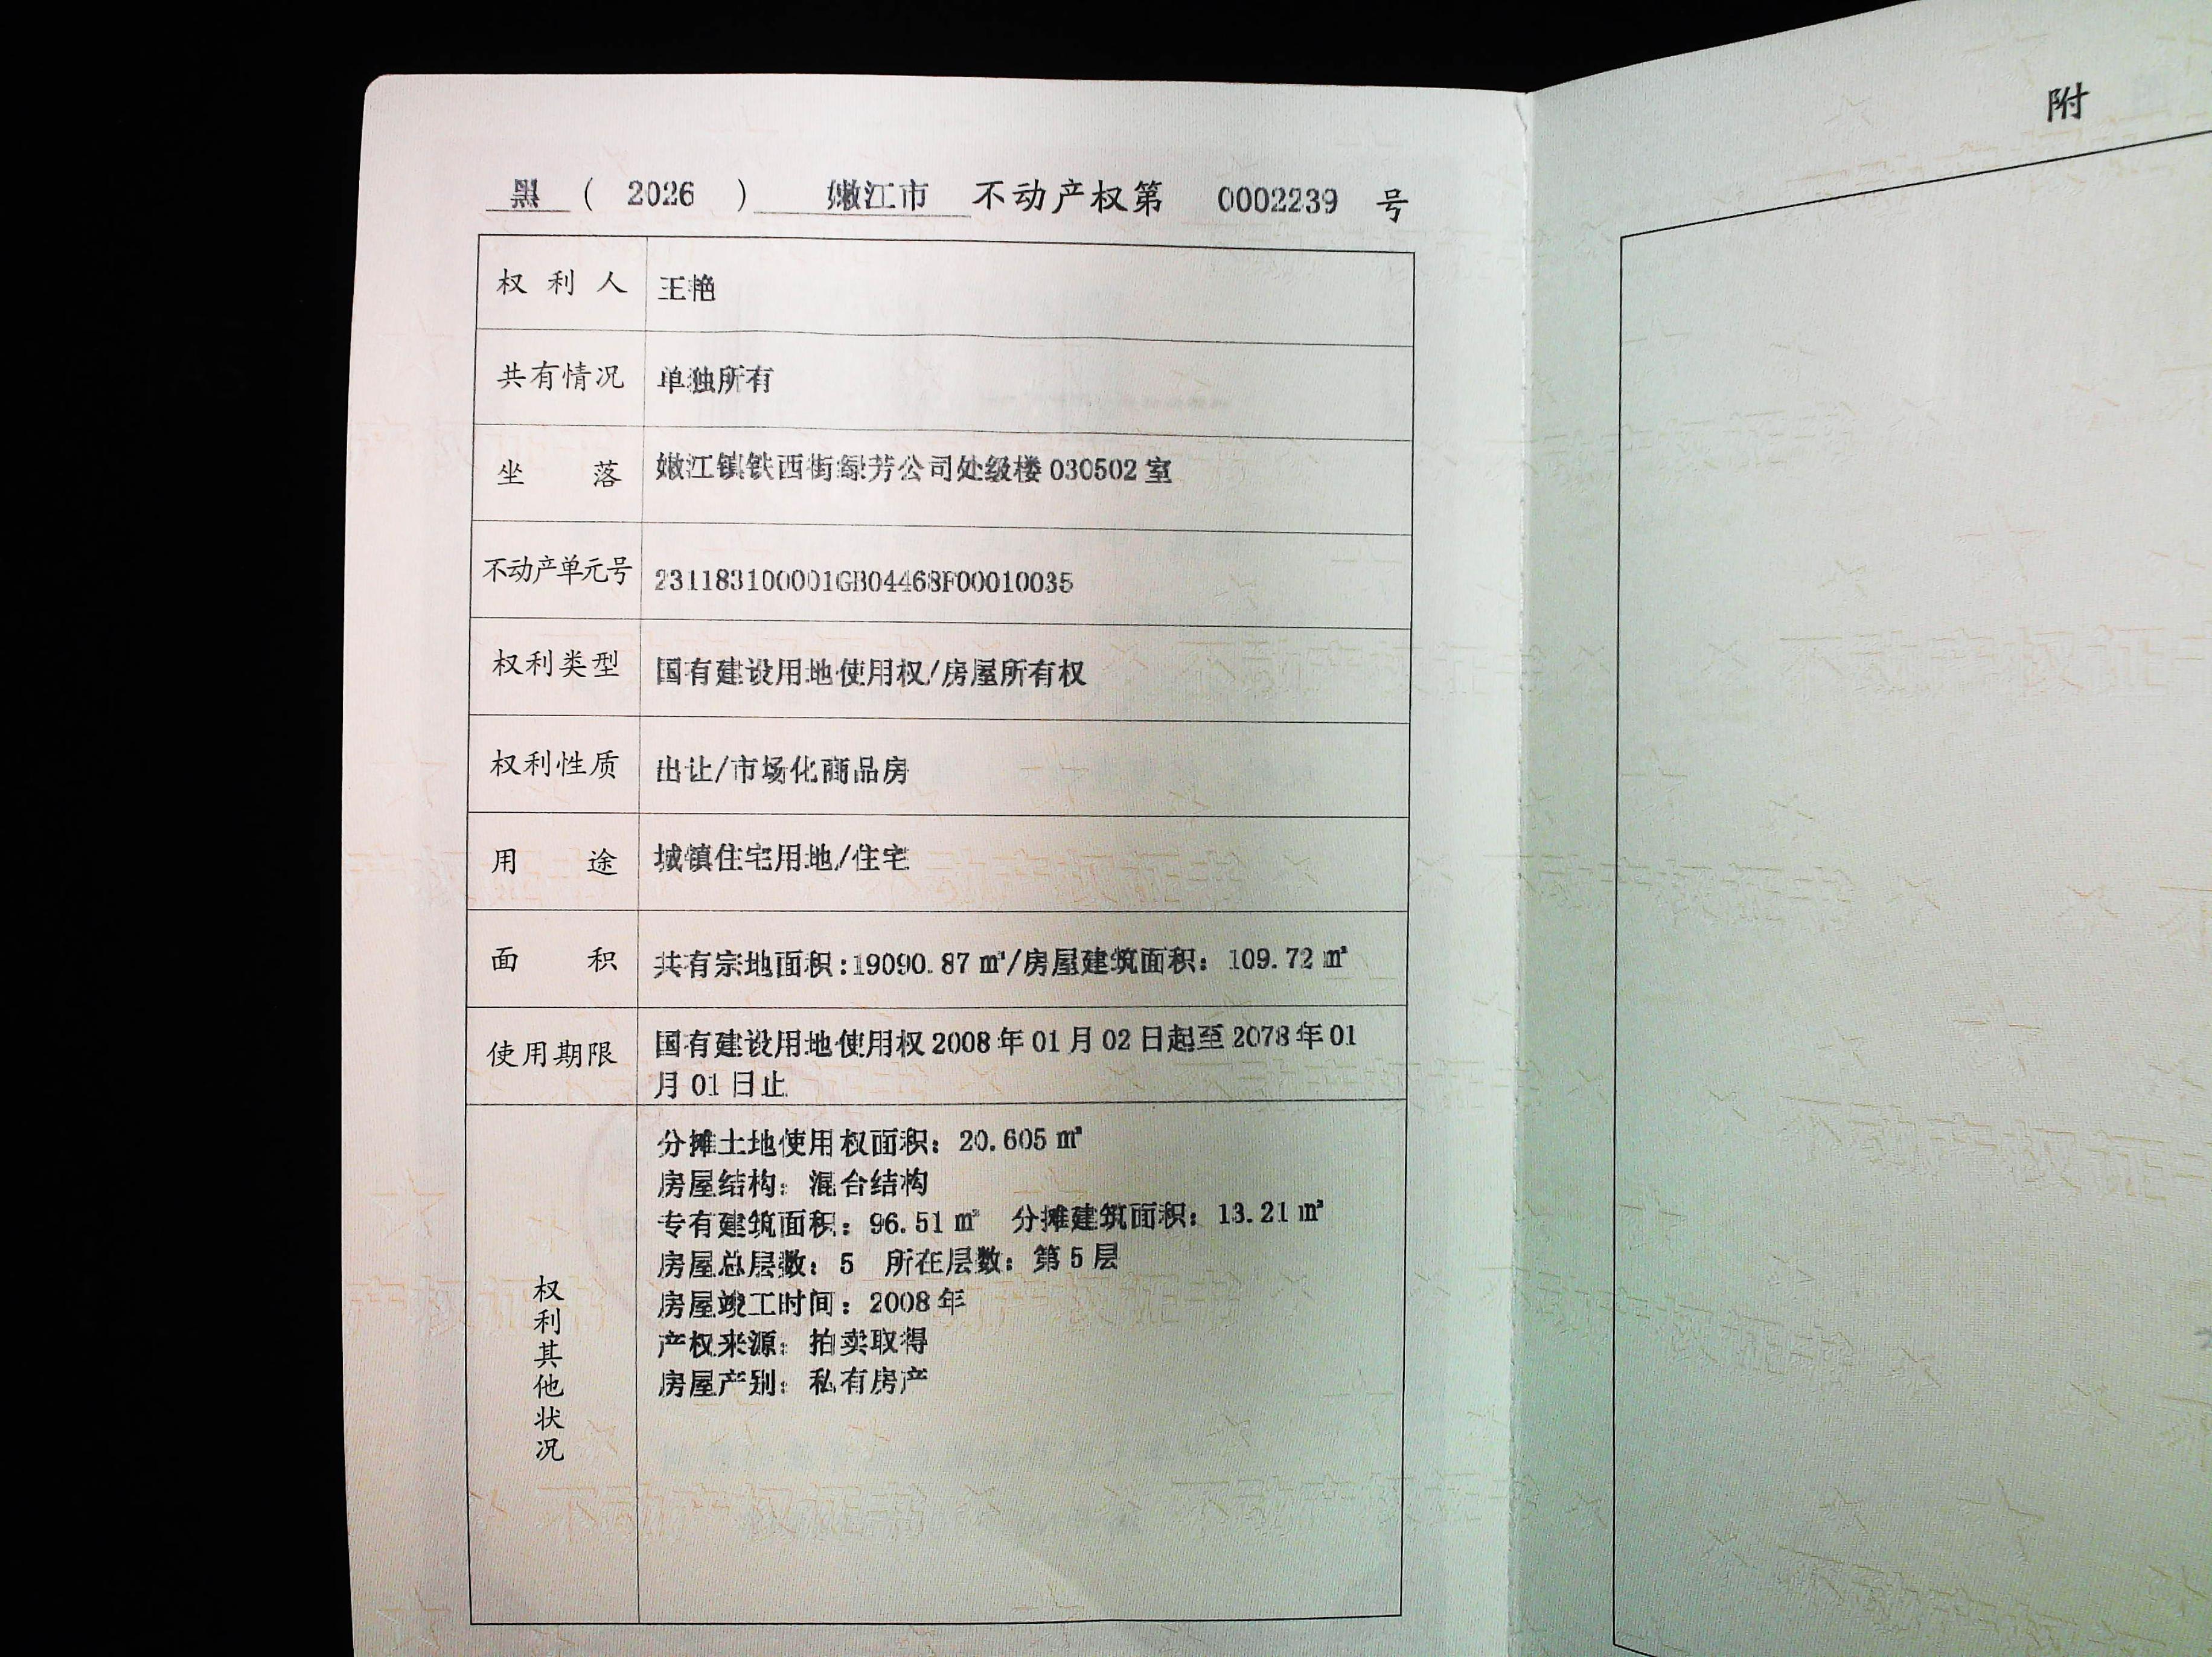 黑 ( 2026 ) 嫩江市 不动产权第 0002239 号
附
权利人 王艳
共有情况 单独所有
坐落 嫩江镇铁西街绿芳公司处级楼030502室
不动产单元号 231183100001GB04468F00010035
权利类型 国有建设用地使用权/房屋所有权
权利性质 出让/市场化商品房
用途 城镇住宅用地/住宅
面积 共有宗地面积:19090.87㎡/房屋建筑面积:109.72㎡
使用期限 国有建设用地使用权2008年01月02日起至2078年01
月01日止
权利其他状况
分摊土地使用权面积:20.605㎡
房屋结构:混合结构
专有建筑面积:96.51㎡ 分摊建筑面积:13.21㎡
房屋总层数:5 所在层数:第5层
房屋竣工时间:2008年
产权来源:拍卖取得
房屋产别:私有房产